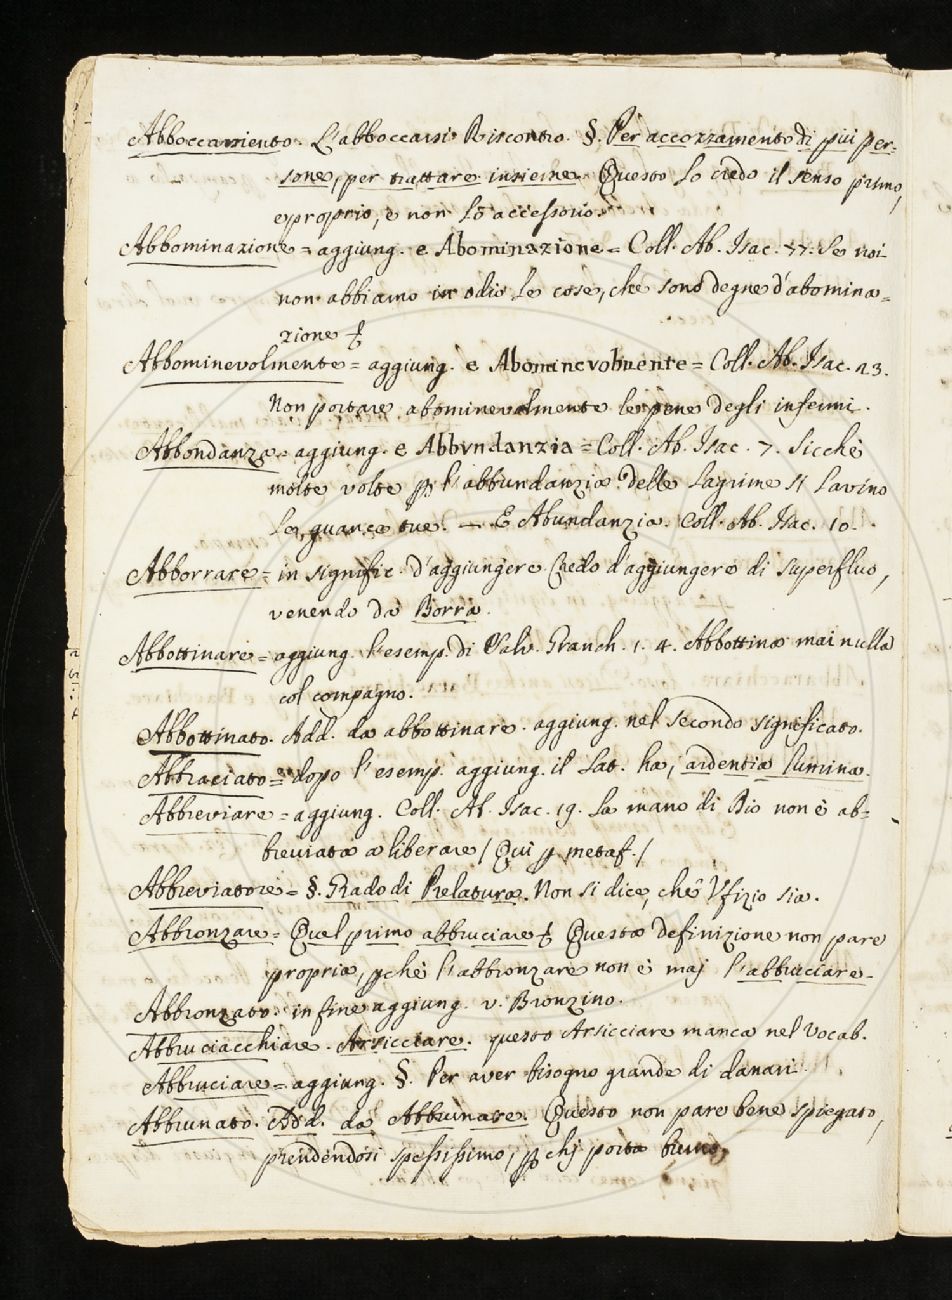 Abboccamento. L'abboccarsi Riscontro. §. Per accozzamento di più per-
sone, per trattare insieme. Questo lo credo il senso primo,
e proprio, e non lo accessorio.
Abbominazione = aggiung. e Abominazione = Coll. Ab. Isac. 77. Se noi
non abbiamo in odio le cose, che sono degne d'abomina=
zione
Abbominevolmente = aggiung. e Abominevolmente = Coll. Ab. Isac. 23.
Non portare abominevolmente le pene degli infermi.
Abbondanza = aggiung. e Abbundanzia = Coll. Ab. Isac. 7. Sicchè
molte volte ꝑ l'abbundanzia delle lagrime si lavino
le guance tue. — E Abundanzia. Coll. Ab. Isac. 10.
Abborrare = in signific. d'aggiungere. Credo d'aggiungere di superfluo,
venendo da Borra.
Abbottinare = aggiung. l'esemp. di Salv. Granch. 1. 4. Abbottina mai nulla
col compagno.
Abbottinato. Add. da abbottinare. aggiung. nel secondo significato.
Abbraciato = dopo l'esemp. aggiung. il Lat. ha, ardentia lumina.
Abbreviare = aggiung. Coll. Ab. Isac. 19. La mano di Dio non è ab=
breviata a liberare / Qui ꝑ metaf. /
Abbreviatore = §. Grado di Prelatura. Non si dice, che Vfizio sia.
Abbronzare = Quel primo abbruciare Questa definizione non pare
propria, ꝑchè l'abbronzare non è maj l'abbruciare.
Abbronzato. in fine aggiung. v. Bronzino.
Abbruciacchiare. Arsicciare. questo Arsicciare manca nel Vocab.
Abbruciare = aggiung. §. Per aver bisogno grande di danari.
Abbrunato. Add. da Abbrunare. Questo non pare bene spiegato,
prendendosi spessissimo, ꝑ chj porta bruno.